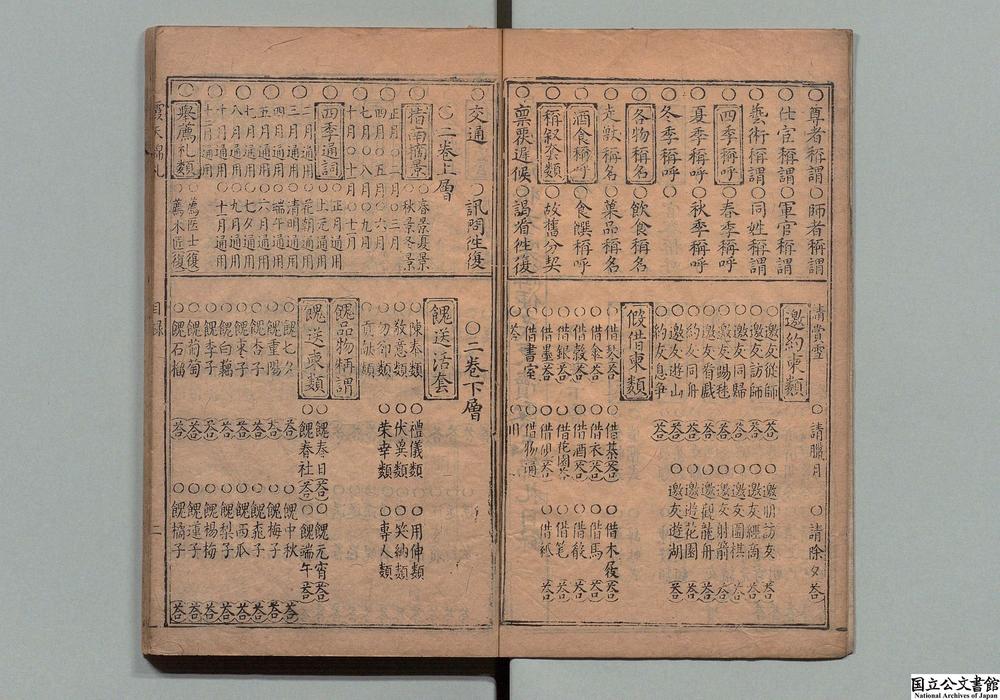 ○尊者稱謂○師者稱謂
○仕宦稱謂○軍官稱謂
○藝術稱謂○同姓稱謂
四季稱呼○春季稱呼
○夏季稱呼○秋季稱呼
○冬季稱呼○
各物稱名○飲食稱名
○走獸稱名○藥品稱名
酒食稱呼○食饌稱呼
稱叙套類○故舊分契
○稟候○謁看往復
○交通○訊問往復
○二卷上層
指南摘景○春景夏景○秋景冬景
○正月○二月○三月
○四月○五月○六月
○七月○八月○九月
○十月○十一月○十二月
四季通詞○正月通用○上元通用
○二月通用○花朝通用
○三月通用○清明通用
○四月通用○端午通用
○五月通用○六月通用
○七月通用○七夕通用
○八月通用○九月通用
○十月通用○十一月通用
○十二月通用
舉薦札類○薦医士(復)○薦木匠(復)
○請賞雪○請臘月○請除夕(答)
邀約柬類
○邀友從師(答)○邀朋訪友(答)
○邀友訪師(答)○邀友經商(答)
○邀友同歸(答)○邀友圍棋(答)
○邀友踢毬(答)○邀友射箭(答)
○邀友看戲(答)○邀觀龍舟(答)
○約友同舟(答)○邀遊花園(答)
○邀友遊山(答)○邀友遊湖(答)
○約友息爭(答)
假借柬類
○借琴(答)○借棊(答)○借木屐(答)
○借傘(答)○借衣(答)○借馬(答)
○借穀(答)○借酒(答)○借
○借銀(答)○借花園(答)○借笔(答)
○借墨(答)○借硯(答)○借(答)
○借書室○借物通
○答○
○二卷下層
餽送活套
○陳奉類○禮儀類○用伸類
○致意類○伏兾類○笑納類
○勿卻類○榮幸類○專人類
○貢献類
餽品物稱謂
餽送柬類○餽春日(答)○餽元宵(答)
○餽春社(答)○餽端午(答)
○餽七夕(答)○餽中秋(答)
○餽重陽(答)○餽梅子(答)
○餽杏子(答)○餽桃子(答)
○餽枣子(答)○餽西瓜(答)
○餽白藕(答)○餽梨子(答)
○餽李子(答)○餽楊梅(答)
○餽葡萄(答)○餽蓮子(答)
○餽石榴(答)○餽橘子(答)
目録
二
国立公文書館
National Archives of Japan